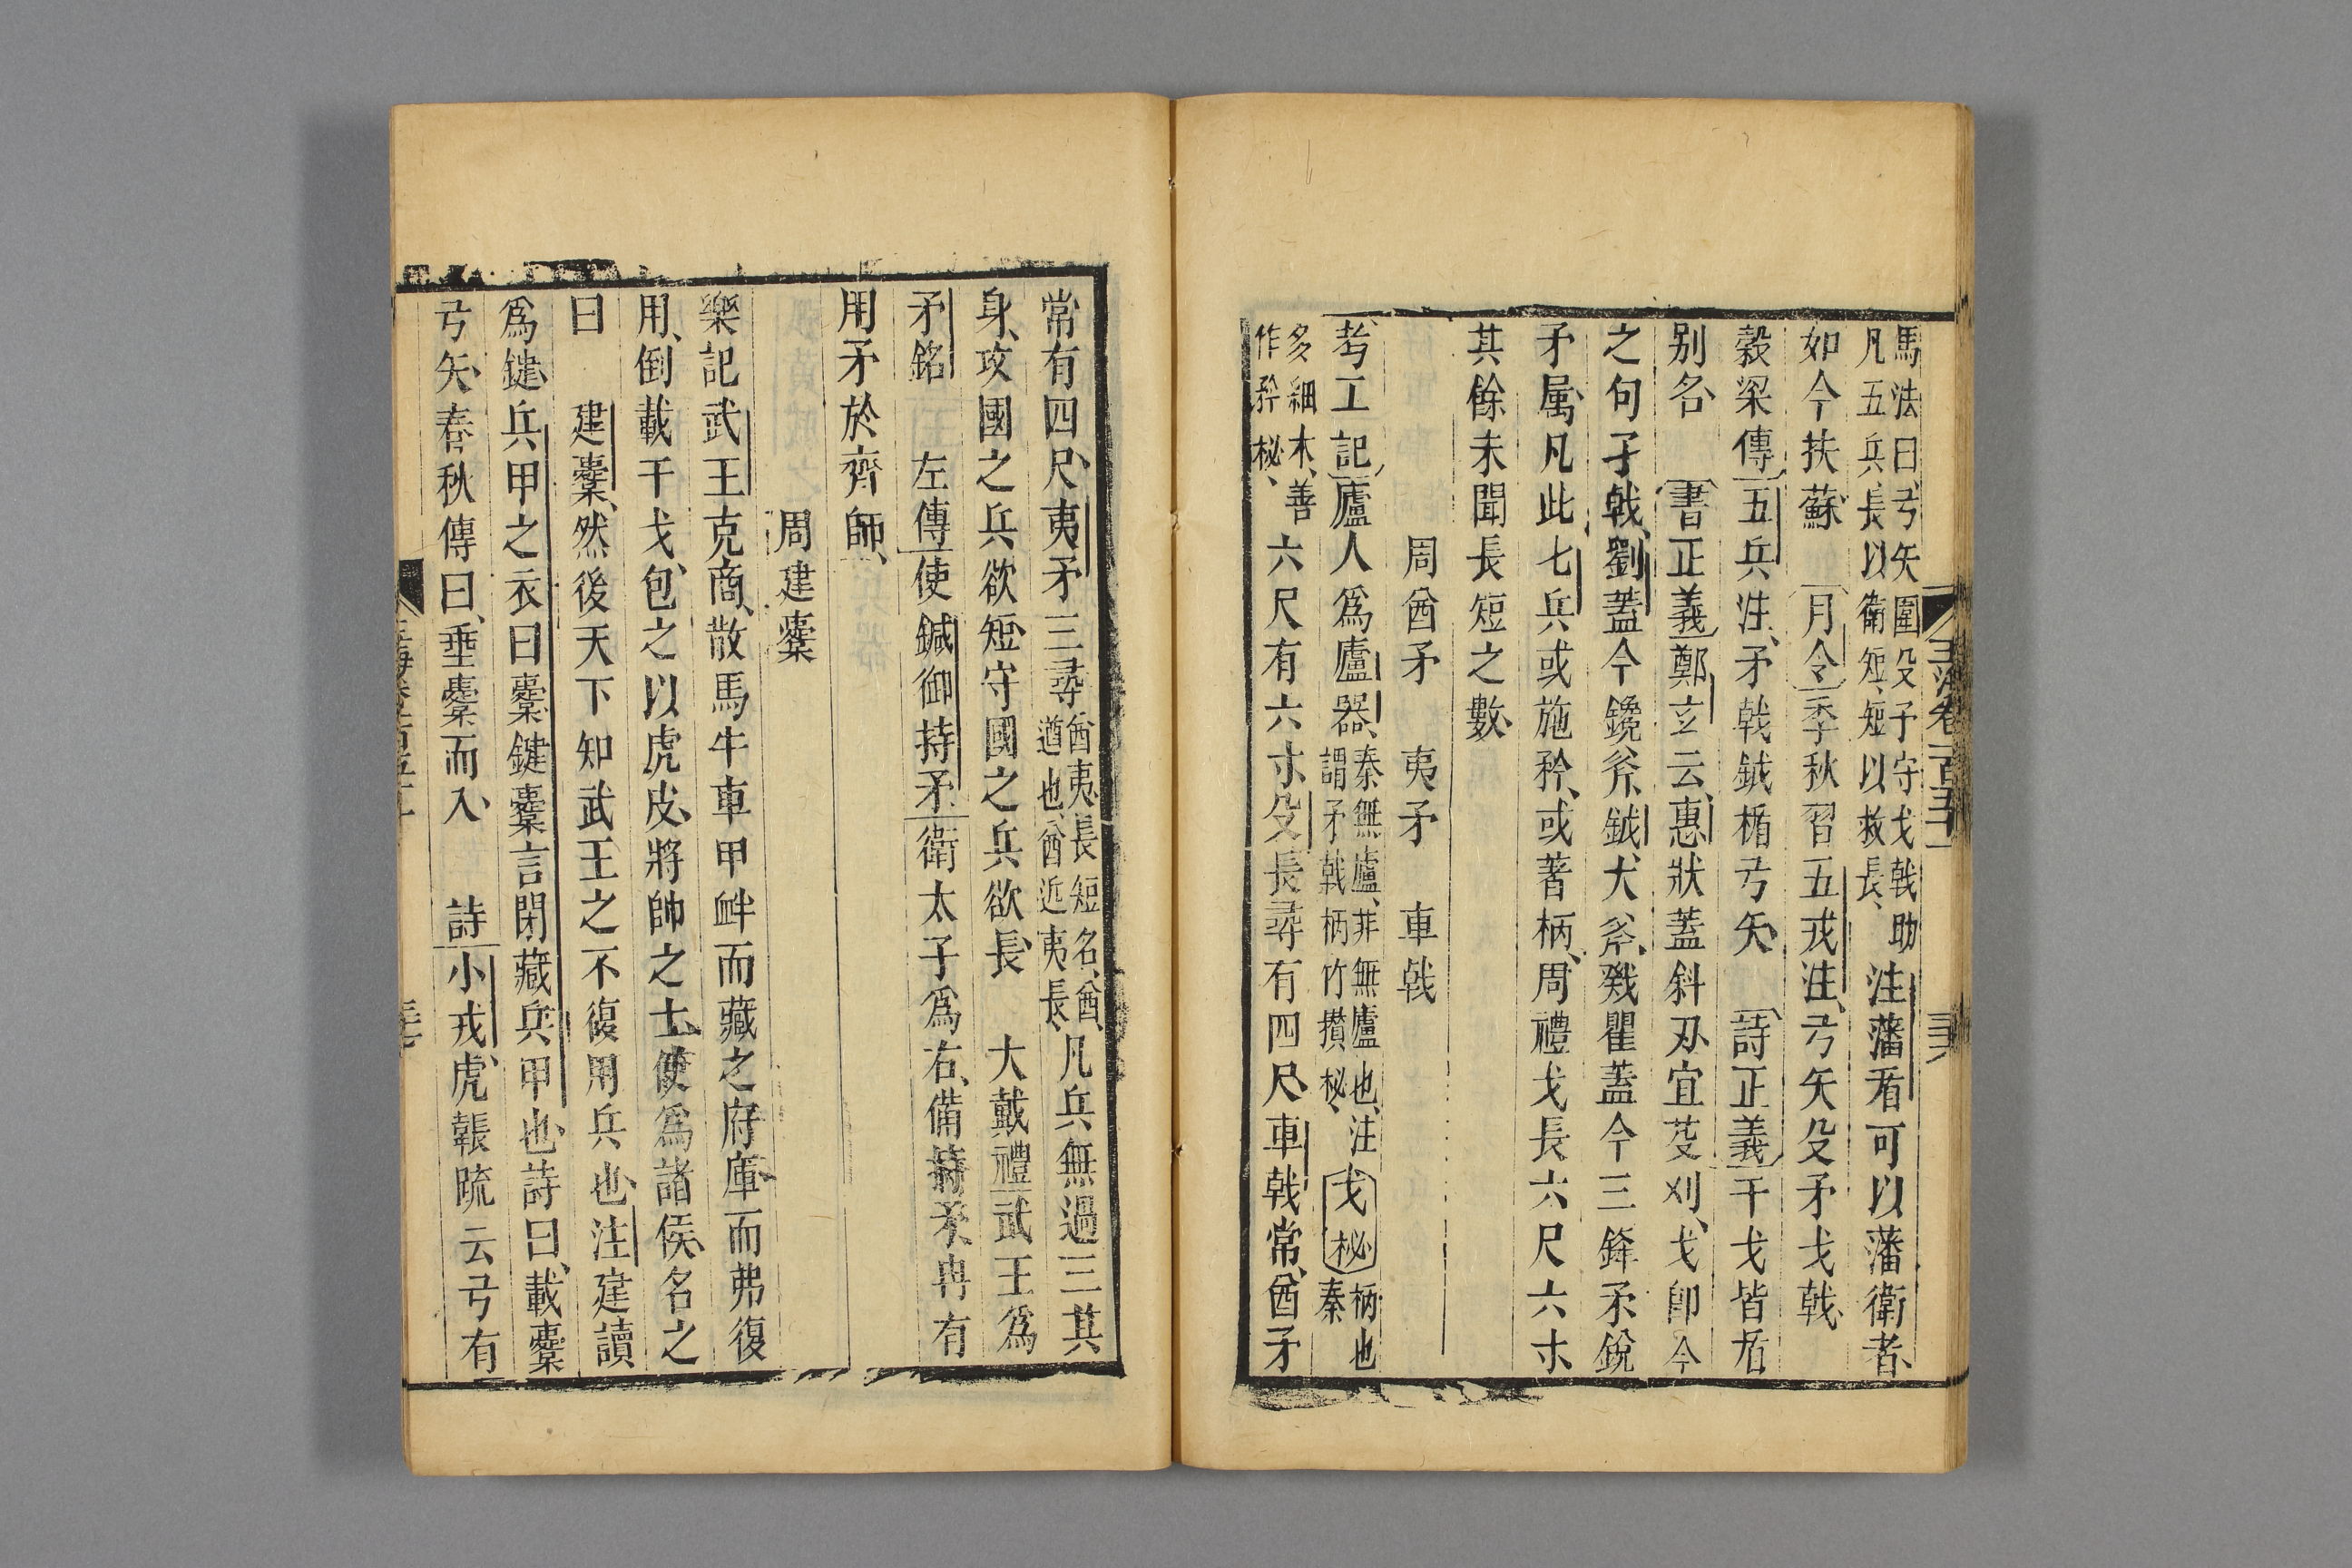 馬法曰弓矢圍殳予守戈戟助
凡五兵長以衛短短以救長
注藩盾可以藩衛者
如今扶蘇 月令季秋習五戎注弓矢殳矛戈戟
穀梁傳五兵注矛戟鉞楯弓矢 詩正義干戈皆盾
别名 書正義鄭玄云惠狀蓋斜刃宜芟刈戈卽今
之句孑戟劉蓋今鑱斧鉞大斧戣瞿蓋今三鋒矛銳
矛屬凡此七兵或施矜或著柄周禮戈長六尺六寸
其餘未聞長短之數
周酋矛 夷矛 車戟
考工記廬人爲廬器
秦無廬非無廬也注
謂矛戟柄竹攢柲
戈柲
柄也
秦
多細木善
作矜柲
六尺有六寸殳長尋有四尺車戟常酋矛
玉海卷一百五十一
常有四尺夷矛三尋
酋夷長短名酋
遒也酋近夷長
凡兵無過三其
身攻國之兵欲短守國之兵欲長 大戴禮武王爲
矛銘 左傳使鍼御持矛衛太子爲右備持矛冉有
用矛於齊師
周建櫜
樂記武王克商散馬牛車甲衅而藏之府庫而弗復
用倒載干戈包之以虎皮將帥之士使爲諸侯名之
曰 建櫜然後天下知武王之不復用兵也注建讀
爲鍵兵甲之衣曰櫜鍵櫜言閉藏兵甲也詩曰載櫜
弓矢春秋傳曰垂櫜而入 詩小戎虎韔疏云弓有